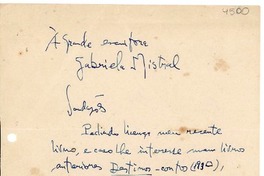 4500
À grande escritora
Gabriela Mistral
Saudações
licença meu recente
livro, e caso lhe interesse meu livro
anteriores Destino - contos